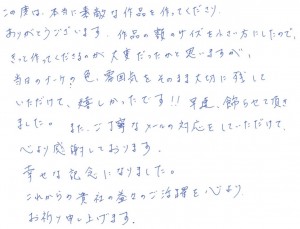 この度は、本当に素敵な作品を作ってくださり、
ありがとうございます。作品の額のサイズも小さい方にしたので、
きっと作ってくださるのが大変だったかと思いますが、
当日のインクの色、雰囲気をそのまま大切に残して
いただけて、嬉しかったです!!早速、飾らせて頂き
ました。また、ご丁寧なメールの対応をしていただけて、
心より感謝しております。
幸せな記念になりました。
これからの貴社の益々のご活躍を心より
お祈り申し上げます。